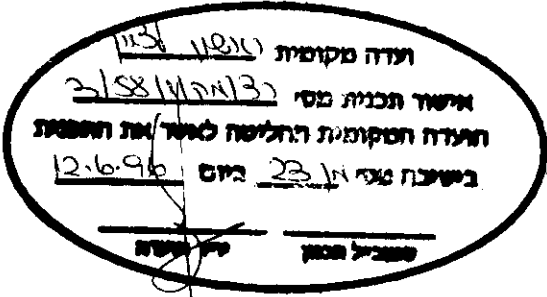 ועדה מקומית ראשון לציון
אישור תכנית מס' רצ/מק/1/58/3
הועדה המקומית החליטה לאשר את התכנית
בישיבה מס' 23 ביום 12.6.96
סמנכ״ל תכנון